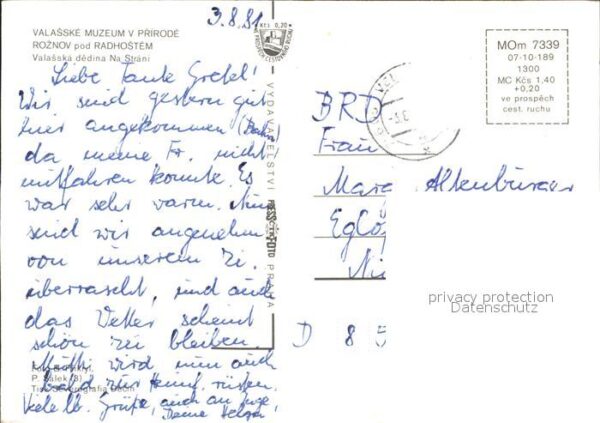 3.8.81
VALAŠSKÉ MUZEUM V PŘÍRODĚ
ROŽNOV pod RADHOŠTĚM
Valašská dědina Na Stráni
Kčs 0,20
Liebe Tante Gretel!
Wir sind gestern gut
hier angekommen
da meine Fr. nicht
mitfahren konnte. Es
war sehr warm. Nun
sind wir angenehm
von unserem Zi.
überrascht, und auch
das Wetter scheint
schön zu bleiben.
Mutti wird nun auch
bald zur
P. Sálek (8)
Viele lb. Grüße, auch an Inge,
Deine Helga
VYDAVATELSTVÍ PRESSFOTO PRAHA
MOm 7339
07-10-189
1300
MC Kčs 1,40
+0,20
ve prospěch
cest. ruchu
BRD
Frau
Marg Altenburger
D 8
privacy protection
Datenschutz